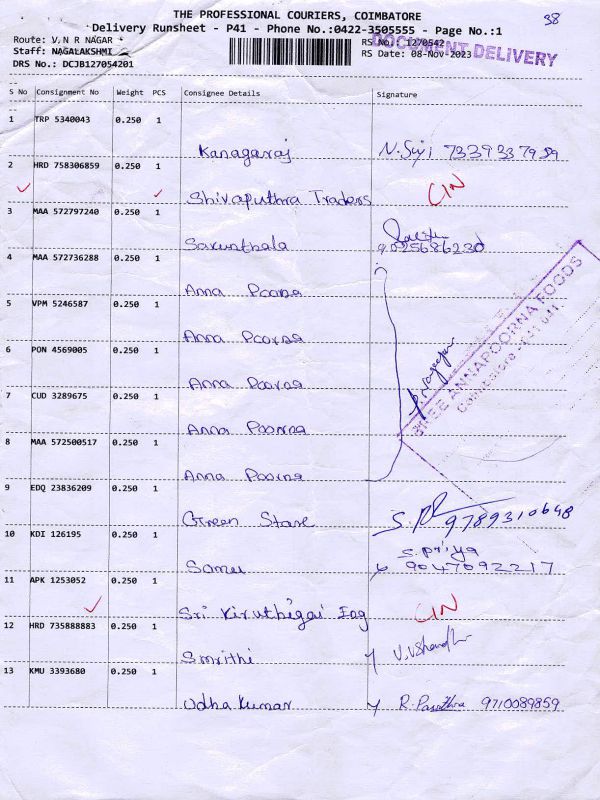 THE PROFESSIONAL COURIERS, COIMBATORE
38
Delivery Runsheet - P41 - Phone No.:0422-3505555 - Page No.:1
Route: V N R NAGAR
RS No: 1270542
DOCUMENT DELIVERY
Staff: NAGALAKSHMI
RS Date: 08-Nov-2023
DRS No.: DCJB127054201
S No Consignment No Weight PCS Consignee Details Signature
1 TRP 5340043 0.250 1
Kanagaraj N. Suji 7339337959
2 HRD 758306859 0.250 1
Shivaputhra Traders CIN
3 MAA 572797240 0.250 1
Sakunthala 9025686230
4 MAA 572736288 0.250 1
Anna Poorna
5 VPM 5246587 0.250 1
Anna Poorna
6 PON 4569005 0.250 1
Anna Poorna
7 CUD 3289675 0.250 1
Anna Poorna
SHREE ANNAPOORNA FOODS
Coimbatore - 641 041
8 MAA 572500517 0.250 1
Anna Poorna
9 EDQ 23836209 0.250 1
Green Stare 9789310648
10 KDI 126195 0.250 1
S. Priya
Somu 9047092217
11 APK 1253052 0.250 1
Sri Kiruthigai Eng CIN
12 HRD 735888883 0.250 1
Smrithi
13 KMU 3393680 0.250 1
Udha Kumar R. Pavithra 9710089859